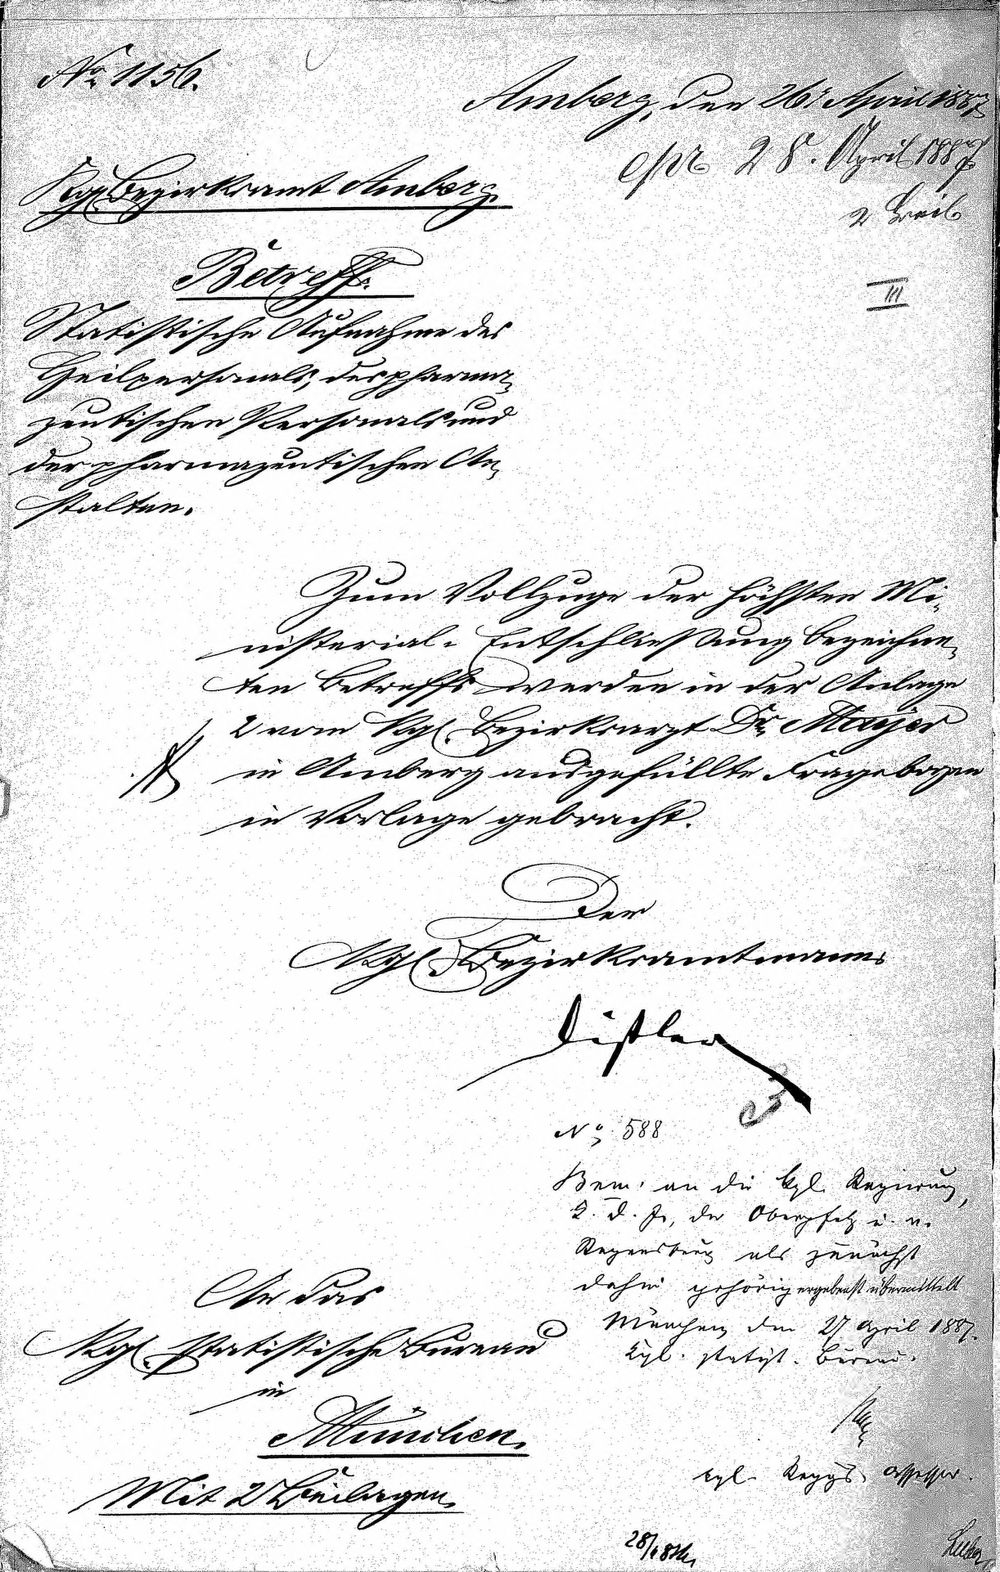 No. 1156.
Amberg, den 26. April 1887
epr 28. April 1887
2 Beil
Kgl. Bezirksamt Amberg.
III
Betreff.
Statistische Aufnahme des
Heilpersonals, des pharma-
zeutischen Personals und
der pharmazeutischen An-
stalten.
Zum Vollzuge der höchsten Mi-
nisterial-Entschließung bezeichne-
ten Betreffs werden in der Anlage
2 vom Kgl. Bezirksarzt Dr. Mayer
in Amberg ausgefüllte Fragebogen
in Vorlage gebracht.
Der
Kgl. Bezirksamtmann
Distler
No. 588
Brm. an die kgl. Regierung,
K. d. J., der Oberpfalz u. v.
Regensburg als zunächst
dahin gehörig ergebenst übermittelt
München, den 27 April 1887.
Kgl. statist. Bureau.
An das
Kgl. statistische Bureau
in
München.
Mit 2 Beilagen.
kgl. Reggs. assessor.